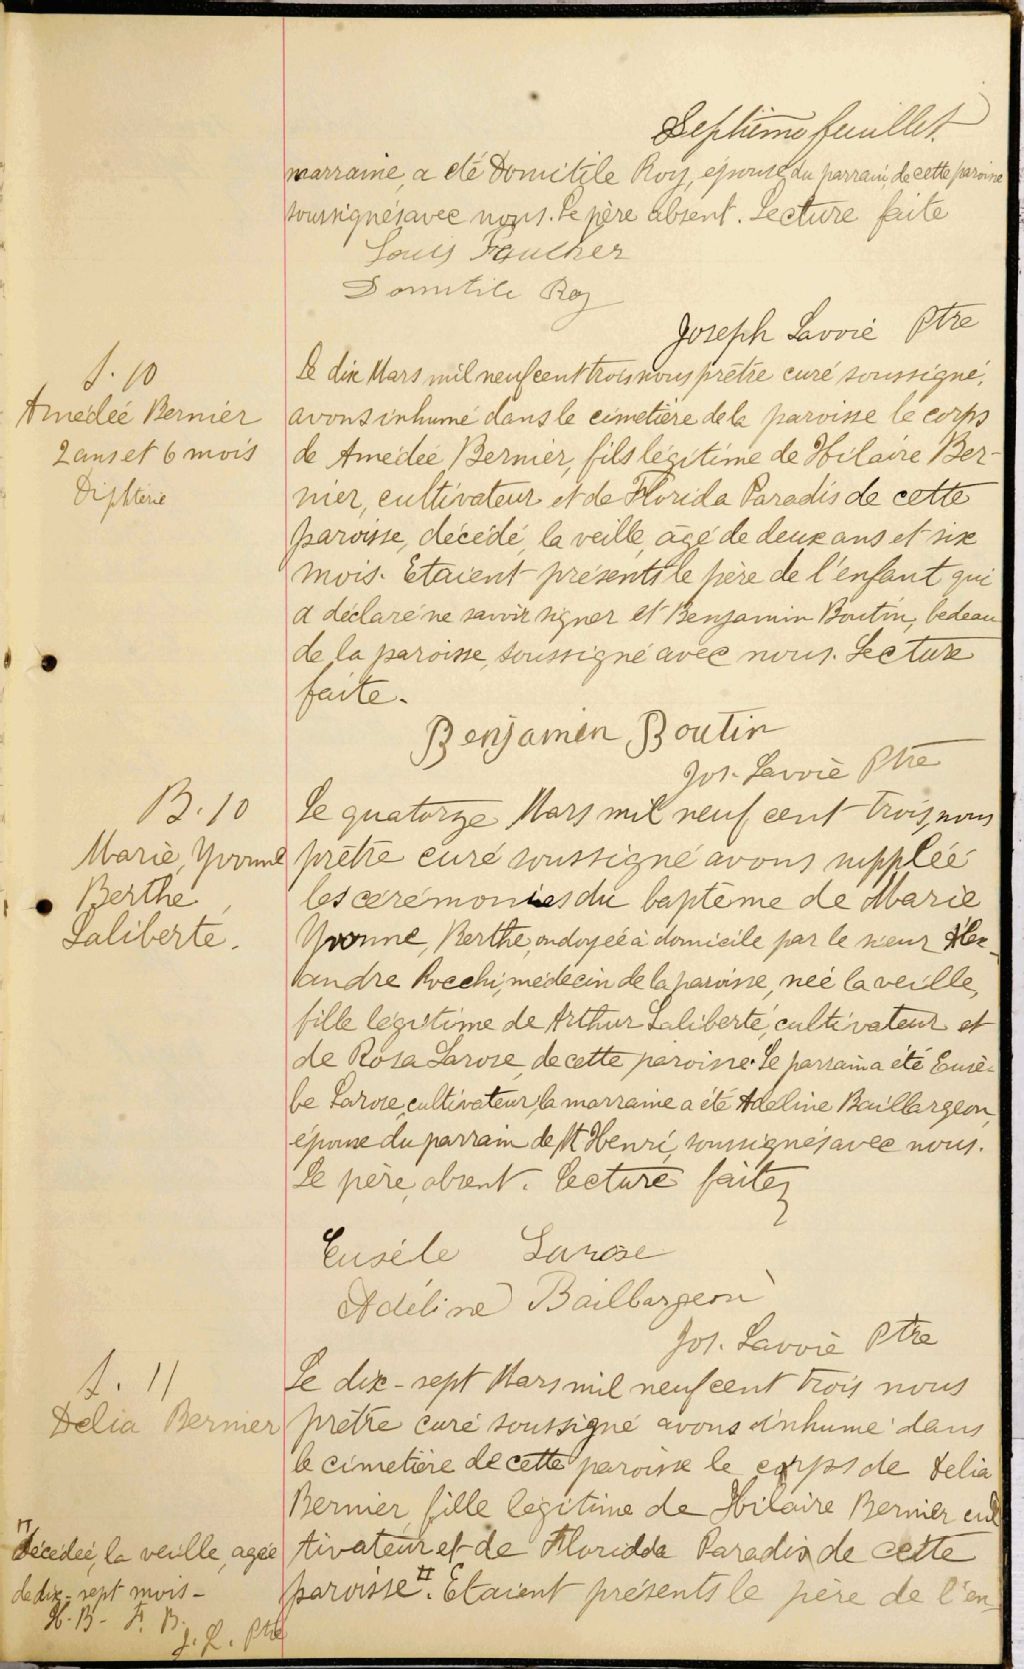 Septième feuillet
marraine, a été Domitile Roy, épouse du parrain, de cette paroisse
soussignés avec nous. Le père absent. Lecture faite
Louis Faucher
Domitile Roy
Joseph Lavoie Ptre
S. 10
Amédée Bernier
2 ans et 6 mois
Diphterie
Le dix Mars mil neuf cent trois nous prêtre curé soussigné,
avons inhumé dans le cimetière de la paroisse le corps
de Amédée Bernier, fils légitime de Hilaire Ber-
nier, cultivateur et de Florida Paradis de cette
paroisse, décédé, la veille, agé de deux ans et six
mois. Etaient présents le père de l'enfant qui
a déclaré ne savoir signer et Benjamin Boutin, bedeau
de la paroisse, soussigné avec nous. Lecture
faite.
Benjamin Boutin
Jos. Lavoie Ptre
B. 10
Marie, Yvonne
Berthe,
Laliberté.
Le quatorze Mars mil neuf cent trois, nous
prêtre curé soussigné avons suppléé
les cérémonies du baptême de Marie
Yvonne, Berthe, ondoyée à domicile par le sieur Alex-
andre Rocchi, médecin de la paroisse, née la veille,
fille légitime de Arthur Laliberté, cultivateur et
de Rosa Larose, de cette paroisse. Le parrain a été Eusè-
be Larose, cultivateur, la marraine a été Adeline Baillargeon,
épouse du parrain de St Henri, soussignés avec nous.
Le père, absent. Lecture faite
Eusèbe Larose
Adéline Baillargeon
Jos. Lavoie Ptre
S. 11
Delia Bernier
Le dix-sept Mars mil neuf cent trois nous
prêtre curé soussigné avons inhumé dans
le cimetière de cette paroisse le corps de Delia
Bernier, fille légitime de Hilaire Bernier cul
tivateur et de Floridda Paradis de cette
paroisse #. Etaient présents le père de l'en-
# décédée, la veille, agée
de dix-sept mois -
H. B - F. B.
J. L. Ptre